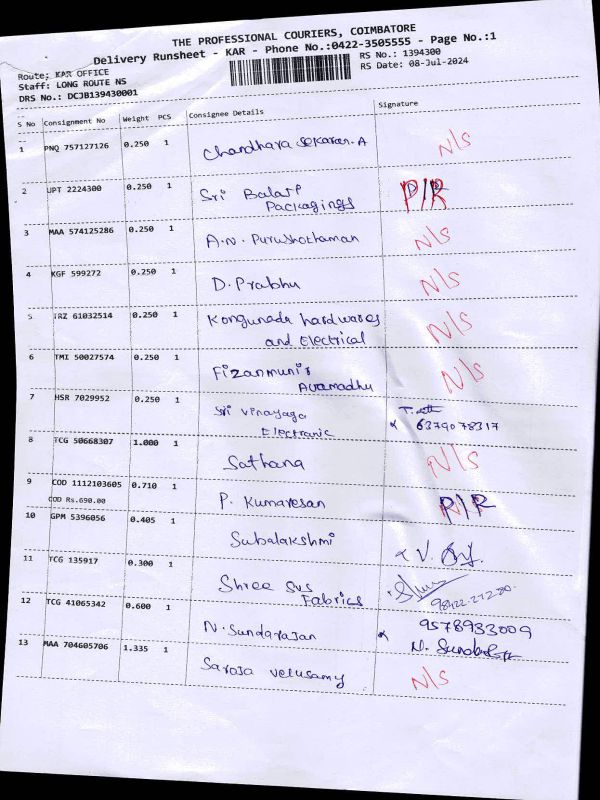 THE PROFESSIONAL COURIERS, COIMBATORE
Delivery Runsheet - KAR - Phone No.:0422-3505555 - Page No.:1
Route: KAR OFFICE
RS No.: 1394300
Staff: LONG ROUTE NS
RS Date: 08-Jul-2024
DRS No.: DCJB139430001
S No Consignment No Weight PCS Consignee Details Signature
1 PNQ 757127126 0.250 1 Chandhara sekaran.A N/S
2 UPT 2224300 0.250 1 Sri Balaji P/R
Packagings
3 MAA 574125286 0.250 1 A.N. Purushothaman N/S
4 KGF 599272 0.250 1 D. Prabhu N/S
5 TRZ 61032514 0.250 1 Kongunadu hardwares N/S
and Electrical
6 TMI 50027574 0.250 1 Fizanmunis N/S
Avamadhu
7 HSR 7029952 0.250 1 Sri Vinayaga
Electronic 6379078317
8 TCG 50668307 1.000 1 Sathana N/S
9 COD 1112103605 0.710 1 P. Kumaresan P/R
COD Rs.690.00
10 GPM 5396056 0.405 1 Subalakshmi V.
11 TCG 135917 0.300 1 Shree Svs
Fabrics
12 TCG 41065342 0.600 1 N. Sundarajan 9578933009
N.
13 MAA 704605706 1.335 1 Saroja velusamy N/S